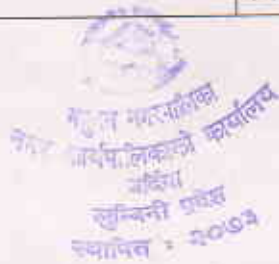 नगरपालिका
नगर कार्यपालिकाको कार्यालय
बर्दिया
लुम्बिनी प्रदेश
स्थापित : २०७३